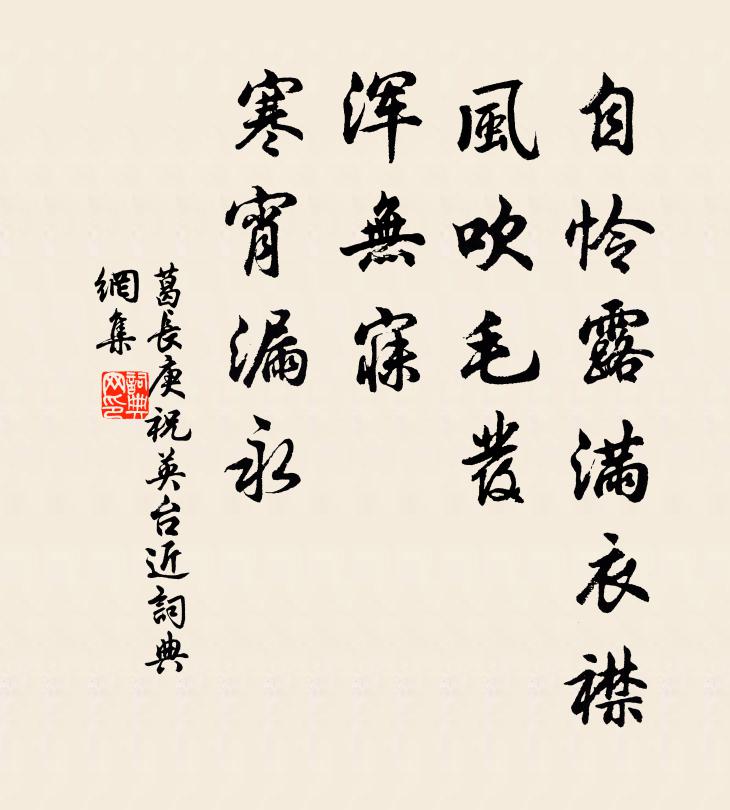 自怜露滿衣襟
風吹毛發
浑無寐
寒宵漏永
葛長庚祝英台近詞典
網集
詞典
网印